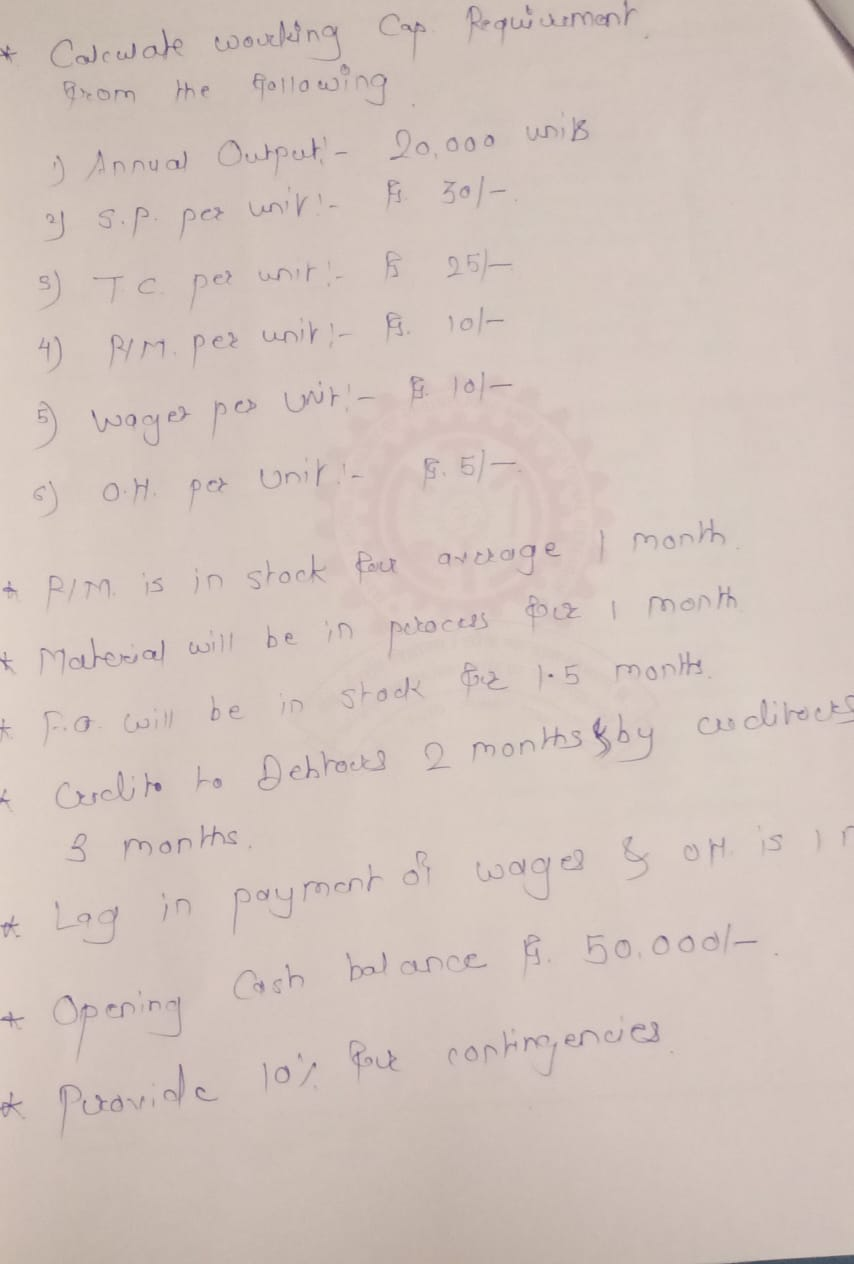 * Calculate working Cap. Requirement.
from the following.
1) Annual Output:- 20,000 units
2) S.P. per unit:- Rs. 30/-.
3) T.C. per unit:- Rs 25/-
4) R/M. per unit:- Rs. 10/-
5) Wages per Unit:- Rs. 10/-
6) O.H. per Unit:- Rs. 5/-.
* R/M. is in stock for average 1 month.
* Material will be in process for 1 month
* F.G. will be in stock for 1.5 months.
* Credit to Debtors 2 months & by creditors
3 months.
* Lag in payment of wages & OH. is 1
* Opening Cash balance Rs. 50,000/-.
* Provide 10% for contingencies.